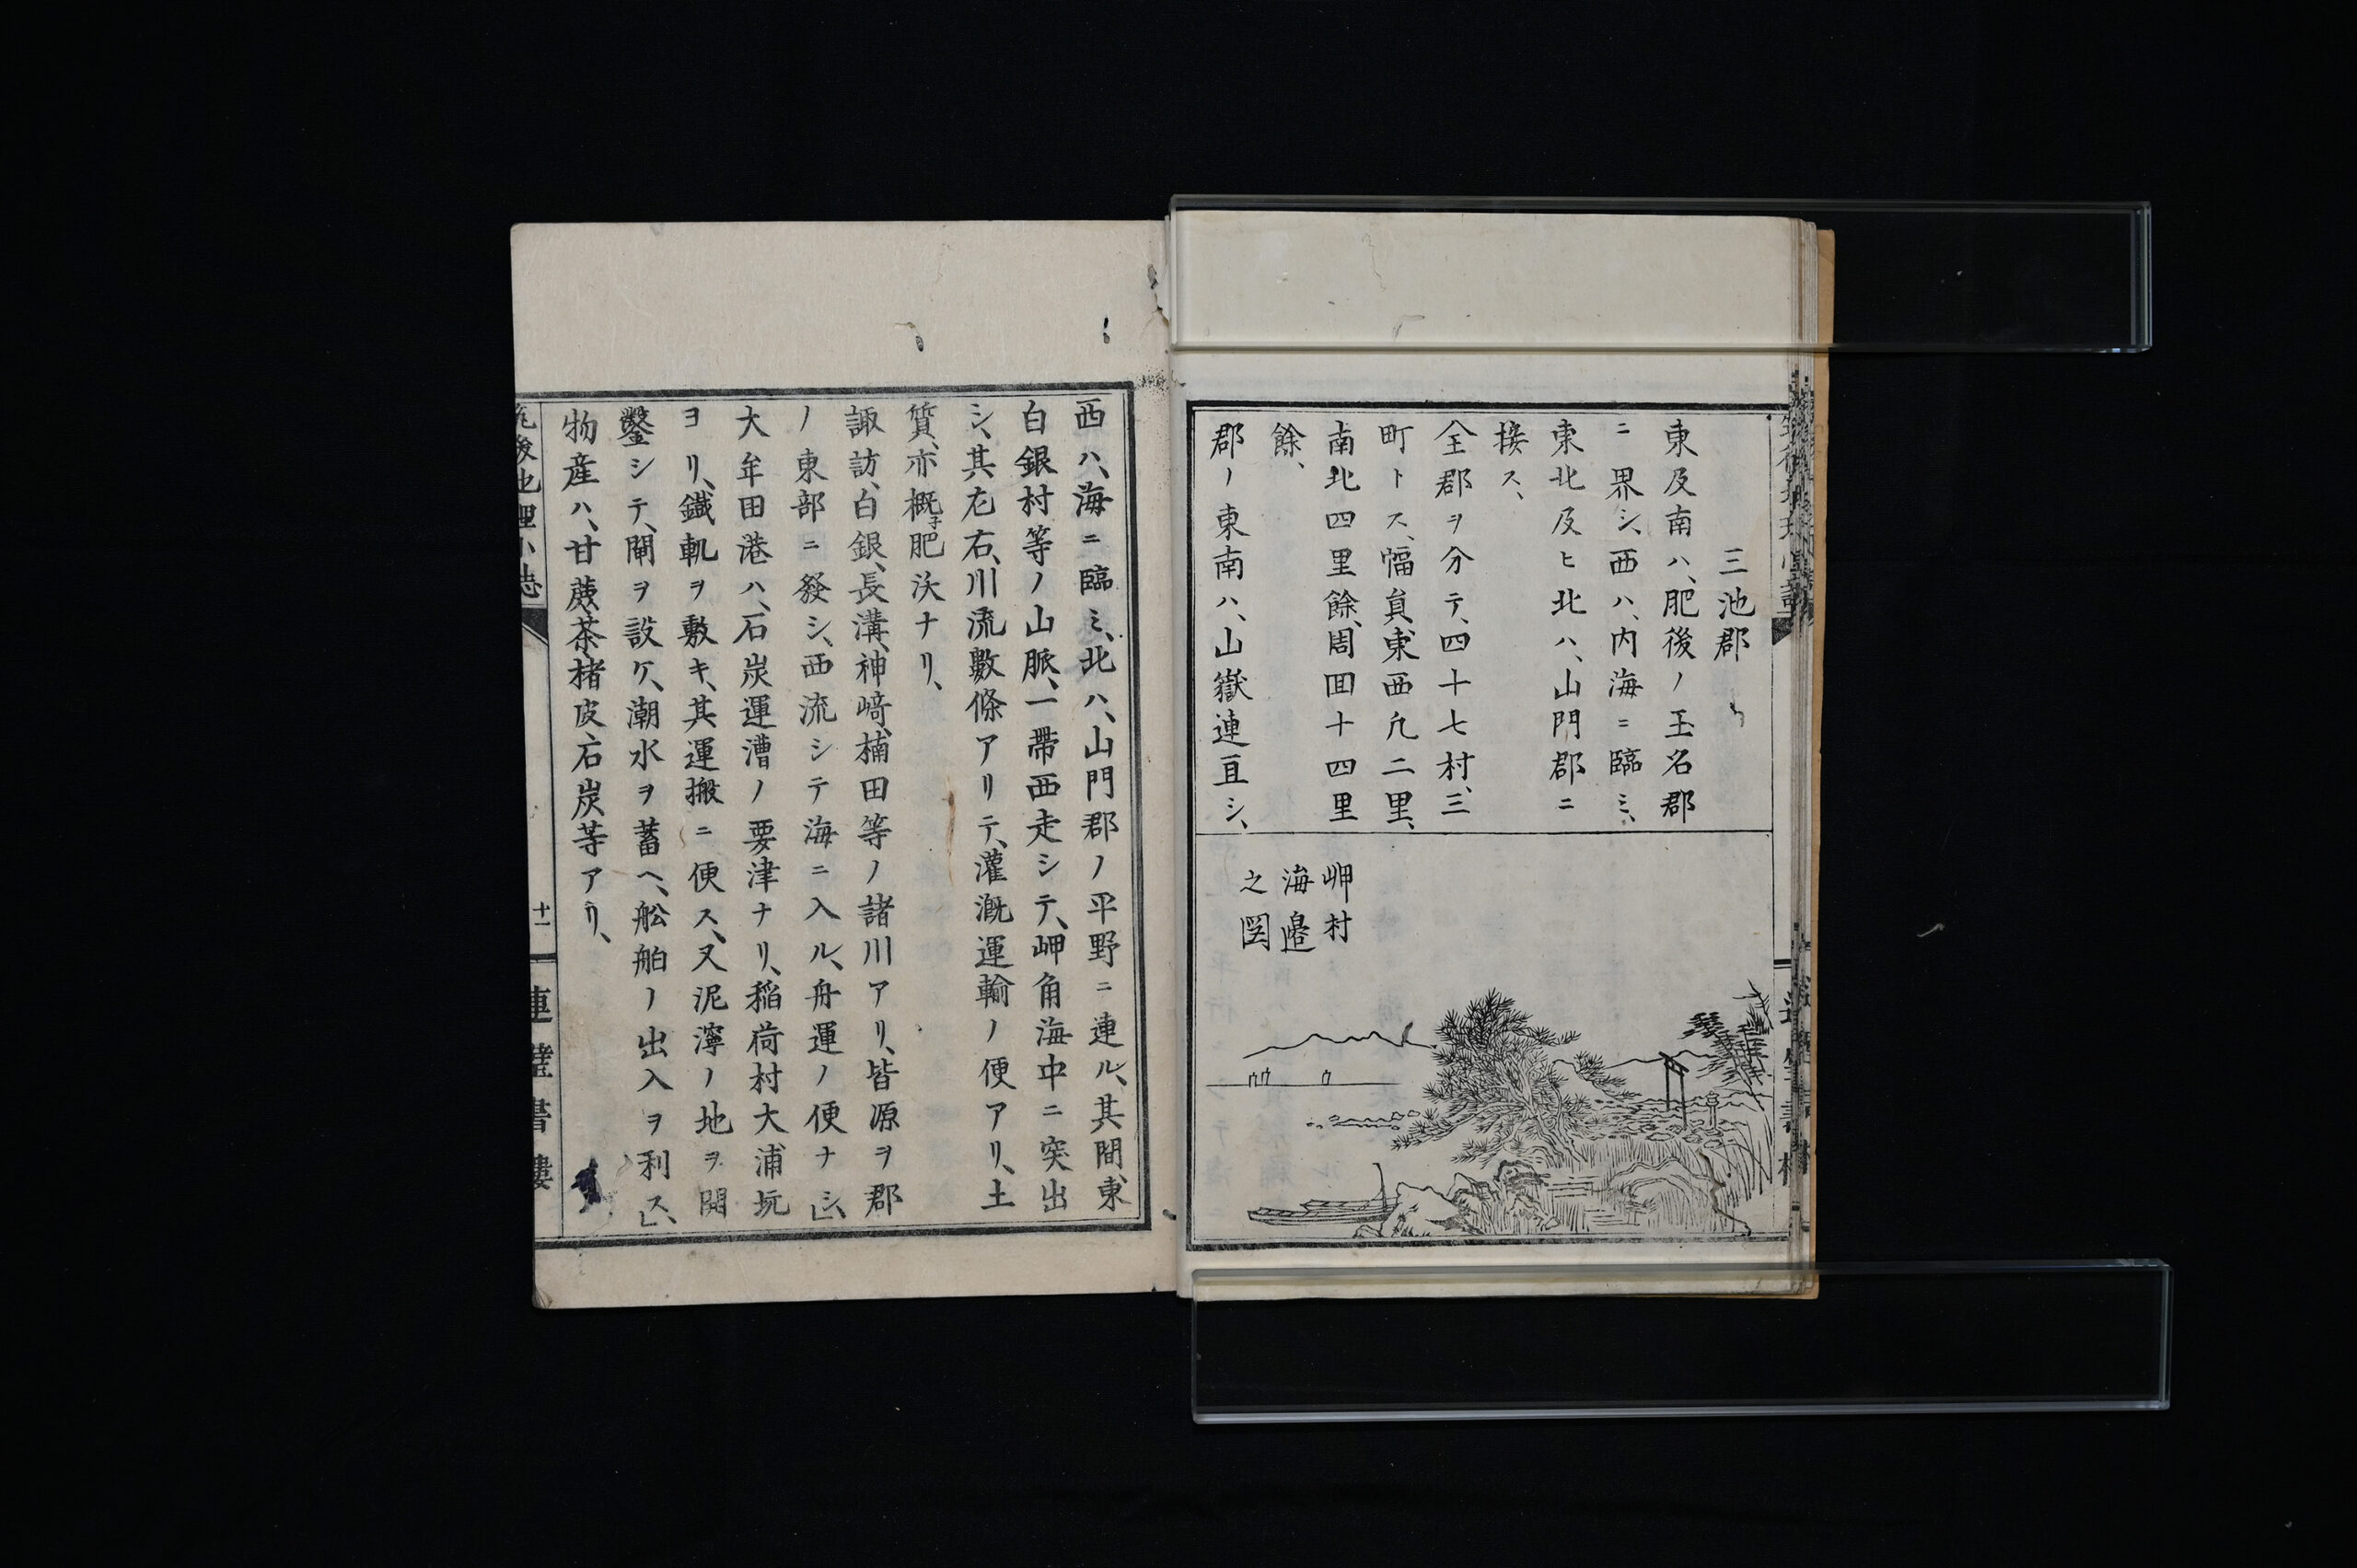 三池郡
東及南ハ、肥後ノ玉名郡
ニ界シ、西ハ、内海ニ臨ミ、
東北及ヒ北ハ、山門郡ニ
接ス、
全郡ヲ分テ、四十七村、三
町トス、幅員東西凢二里、
南北四里餘、周囬十四里
餘、
郡ノ東南ハ、山嶽連亘シ、
岬村
海邉
之圖
西ハ、海ニ臨ミ、北ハ、山門郡ノ平野ニ連ル、其間、東
白銀村等ノ山脈、一帶西走シテ、岬角海中ニ突出
シ、其左右、川流數條アリテ、灌漑運輸ノ便アリ、土
質、亦概子肥沃ナリ、
諏訪、白銀、長溝、神﨑、楠田等ノ諸川アリ、皆源ヲ郡
ノ東部ニ發シ、西流シテ海ニ入ル、舟運ノ便ナシ、
大牟田港ハ、石炭運漕ノ要津ナリ、稲荷村大浦坑
ヨリ、鐵軌ヲ敷キ、其運搬ニ便ス、又泥濘ノ地ヲ開
鑿シテ、閘ヲ設ケ、潮水ヲ蓄ヘ、舩舶ノ出入ヲ利ス、
物産ハ、甘蔗、茶、楮皮、石炭等アリ、
筑後地理小誌
十一
連璧書樓